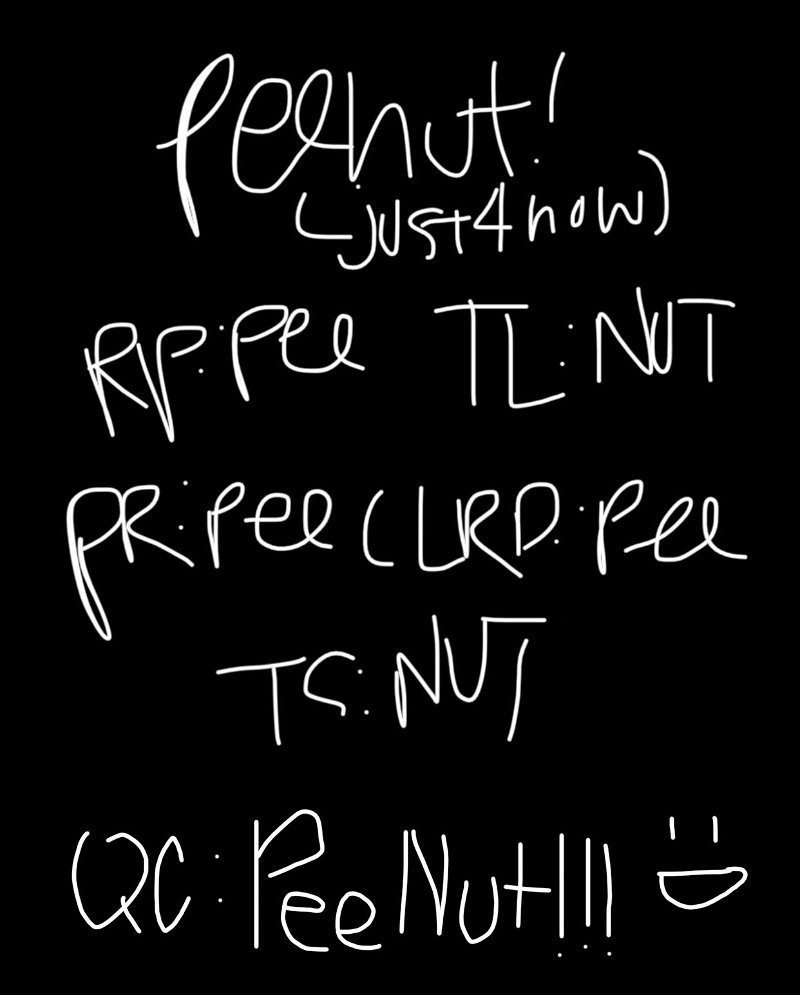 Peenut!
(just 4 now)
RP: Pee TL: NUT
PR: Pee CLRD: Pee
TS: NUT
QC: PeeNut!!!